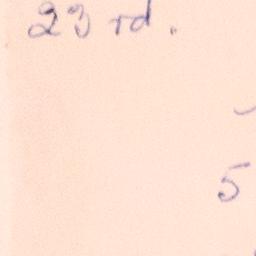 23 rd.
5